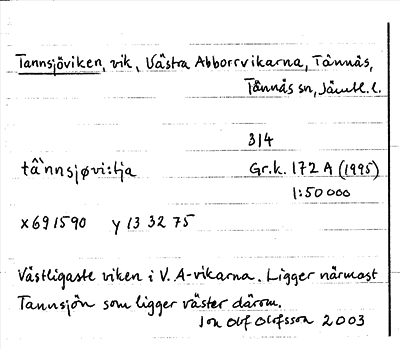 Tannsjöviken, vik, Västra Abborrvikarna, Tännäs,
Tännäs sn, Jämtl. l.
314
tâ`nnsjøvi:tja Gr.k. 172 A (1995)
1:50 000
x 691590 y 13 32 75
Västligaste viken i V. A-vikarna. Ligger närmast
Tannsjön som ligger väster därom.
Jon Olof Olofsson 2003